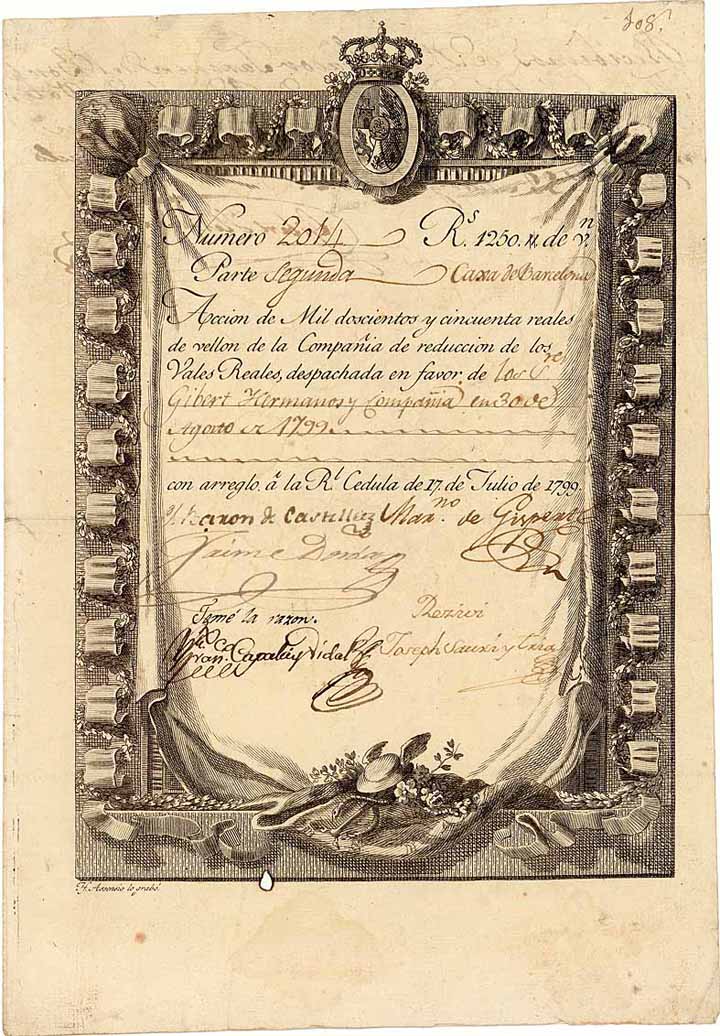 108.
Numero 2014 Rs. 1250. de vn.
Parte Segunda Caxa de Barcelona
Accion de Mil doscientos y cincuenta reales
de vellon de la Compañia de reduccion de los
Vales Reales, despachada en favor de los Sres
Gibert Hermanos y Compañia en 30 de
Agosto de 1799
con arreglo. â la Rl. Cedula de 17. de Julio de 1799.
El Baron de Castellet Marno. de Gispert
Jaime
Tomé la razon. Recivi
Fran. Vidal Joseph y
Assensio lo grabó.